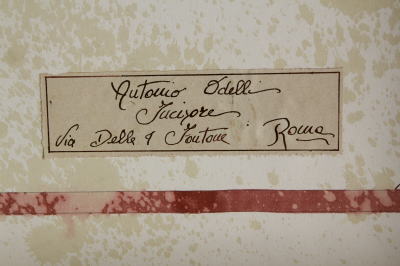 Antonio Odelli
Incisore
Via Delle 4 Fontane Roma